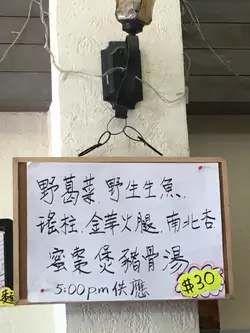 野葛菜,野生生魚,
瑤柱,金華火腿,南北杏
蜜棗煲豬骨湯
5:00pm供應
$30